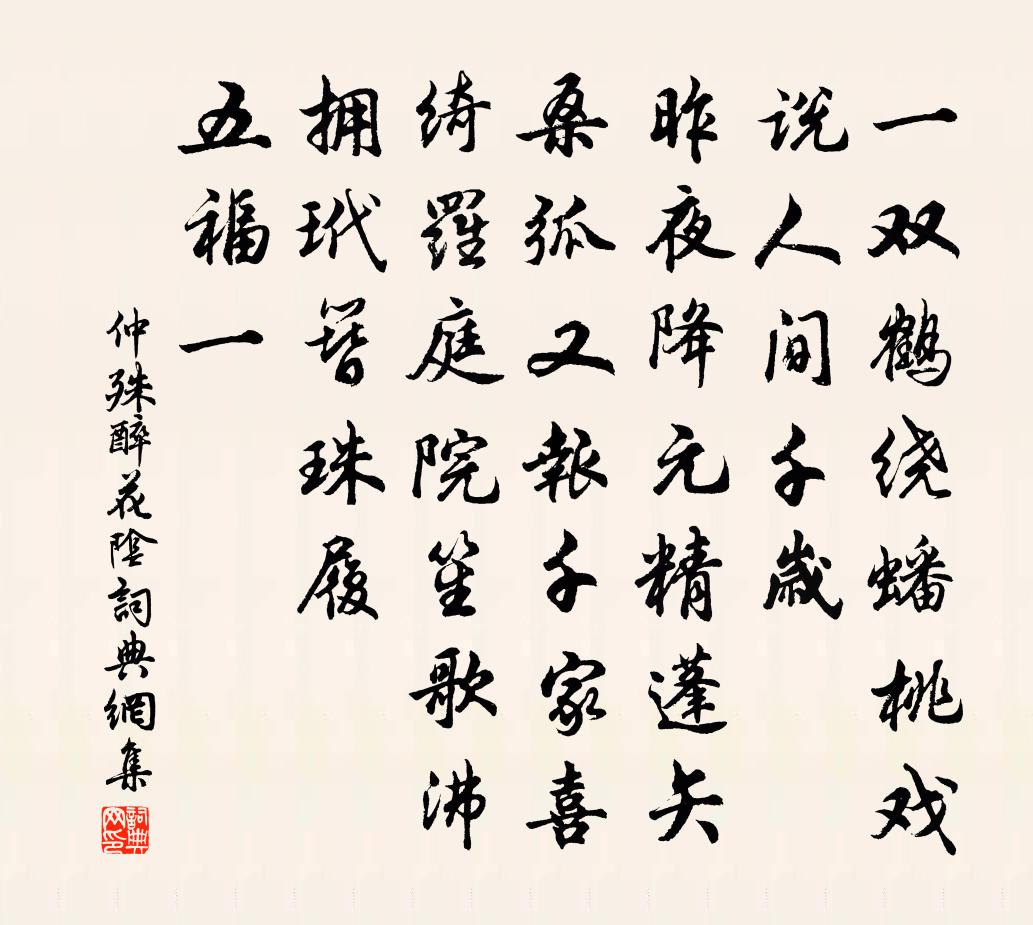 一双鹤绕蟠桃戏
说人间千歲
昨夜降元精蓬矢
桑弧又報千家喜
綺羅庭院笙歌沸
拥玳簪珠履
五福一
仲殊醉花陰詞典網集
詞典
网印